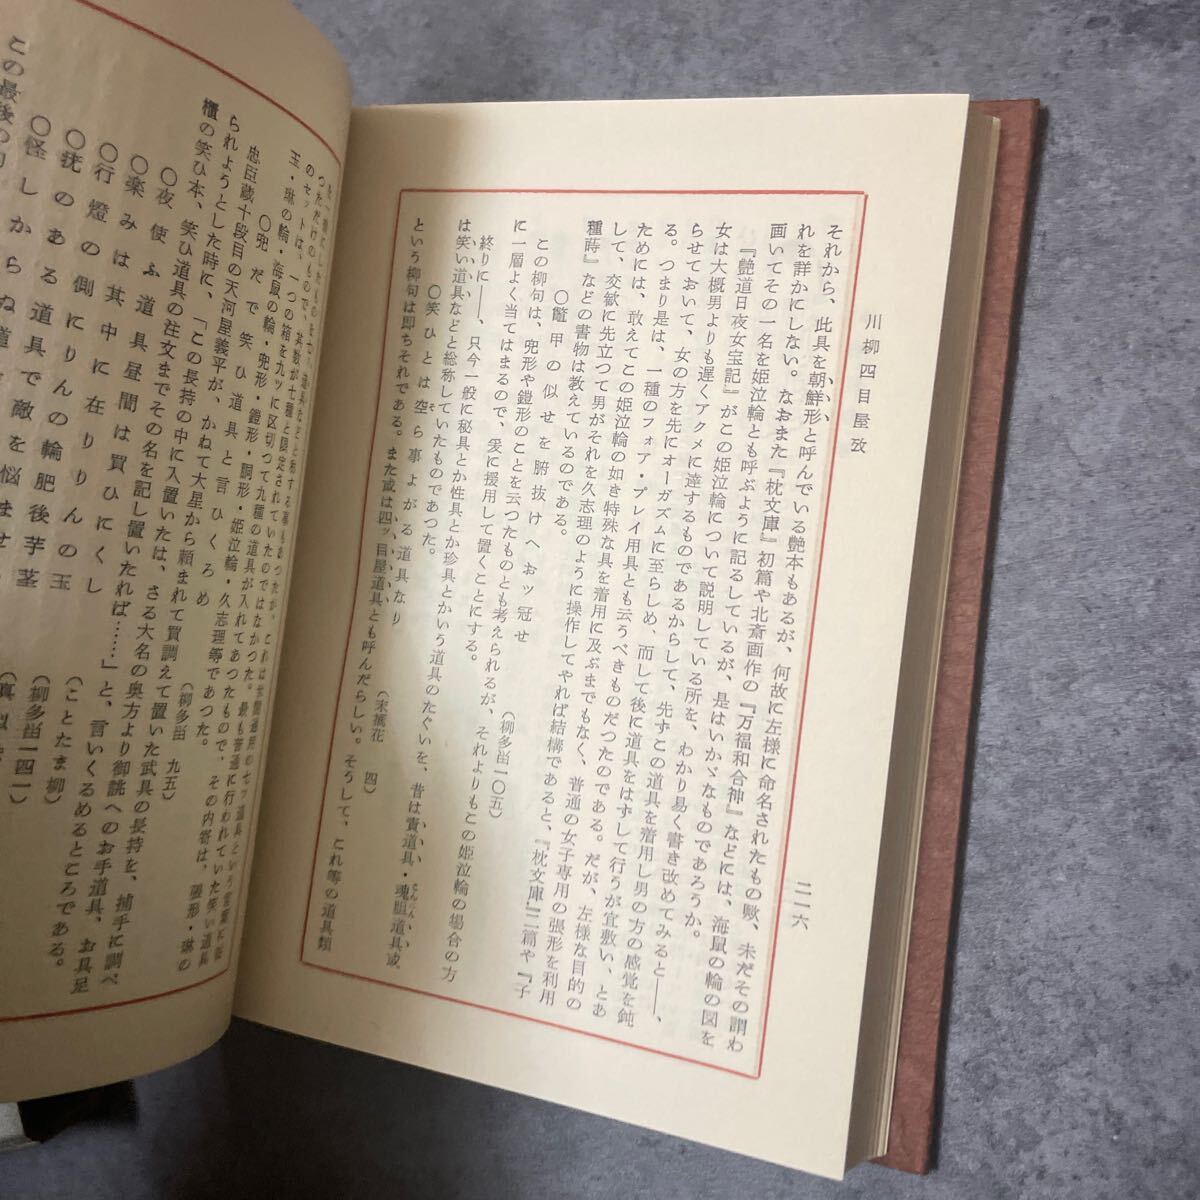 川柳四目屋攷
二一六
それから、此具を朝鮮形と呼んでいる艶本もあるが、何故に左様に命名されたもの歟、未だその謂わ
れを詳かにしない。なおまた『枕文庫』初篇や北斎画作の『万福和合神』などには、海鼠の輪の図を
画いてその一名を姫泣輪とも呼ぶように記るしているが、是はいかゞなものであろうか。
『艶道日夜女宝記』がこの姫泣輪について説明している所を、わかり易く書き改めてみると――、
女は大概男よりも遅くアクメに達するものであるからして、先ずこの道具を着用し男の方の感覚を鈍
らせておいて、女の方を先にオーガズムに至らしめ、而して後に道具をはずして行うが宜敷い、とあ
る。つまり是は、一種のフォア・プレイ用具とも云うべきものだつたのである。だが、左様な目的の
ためには、敢えてこの姫泣輪の如き特殊な具を着用に及ぶまでもなく、普通の女子専用の張形を利用
して、交歓に先立つて男がそれを久志理のように操作してやれば結構であると、『枕文庫』二篇や『子
種蒔』などの書物は教えているのである。
〇鼈甲の似せを腑抜けへおッ冠せ
(柳多留一〇五)
この柳句は、兜形や鎧形のことを云つたものとも考えられるが、それよりもこの姫泣輪の場合の方
に一層よく当てはまるので、爰に援用して置くことにする。
終りに――、只今一般に秘具とか性具とか珍具とかいう道具のたぐいを、昔は責道具・魂胆道具或
は笑い道具などと総称していたものであつた。
〇笑ひとは空ら事よがる道具なり
(末摘花 四)
という柳句は即ちそれである。また或は四ッ目屋道具とも呼んだらしい。そうして、これ等の道具類
のセットは、一つの箱を九ッに区切つて九種の道具が入れてあつたもので、その内容は、張形・琳の
玉・琳の輪・海鼠の輪・兜形・鎧形・胴形・姫泣輪・久志理等であつた。
〇兜だで笑ひ道具と言ひくろめ
(柳多留 九五)
忠臣蔵十段目の天河屋義平が、かねて大星から頼まれて買調えて置いた武具の長持を、捕手に調べ
られようとした時に、「この長持の中に入置いたは、さる大名の奥方より御誂へのお手道具、お具足
櫃の笑ひ本、笑ひ道具の注文までその名を記し置いたれば……」と、言いくるめるところである。
〇夜使ふ道具昼間は買ひにくし
(ことたま柳)
〇楽みは其中に在りりんの玉
(柳多留一四一)
〇行燈の側にりんの輪肥後芋茎
〇疣のある道具で敵を悩ませ
〇怪しからぬ道
この最後の句